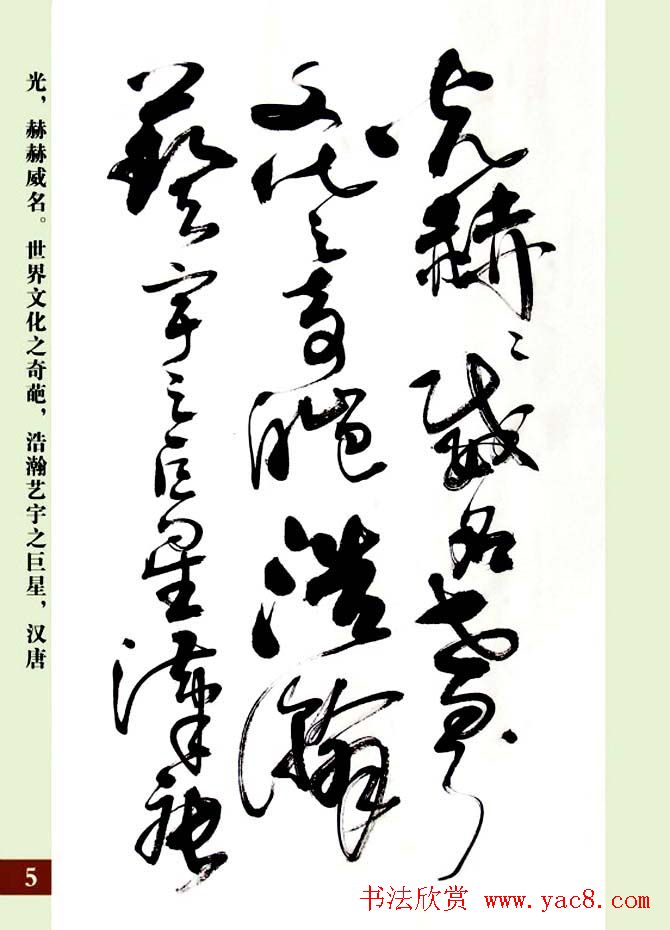 光赫〻威名世界
文化之奇葩浩瀚
藝宇之巨星漢唐
光，赫赫威名。世界文化之奇葩，浩瀚艺宇之巨星，汉唐
5
书法欣赏 www.yac8.com